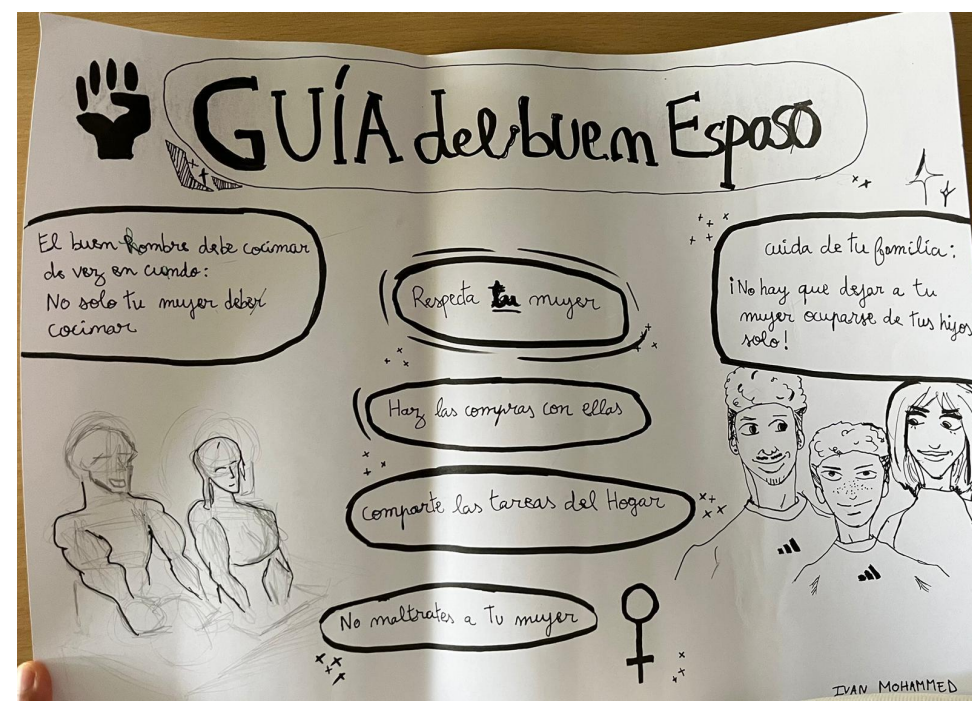 GUÍA del buen Esposo
El buen hombre debe cocinar
de vez en cuando:
No solo tu mujer deber
cocinar
Respecta tu mujer
Haz las compras con ellas
comparte las tareas del Hogar
No maltrates a Tu mujer
cuida de tu familia:
¡No hay que dejar a tu
mujer ocuparse de tus hijos
solo!
IVAN MOHAMMED